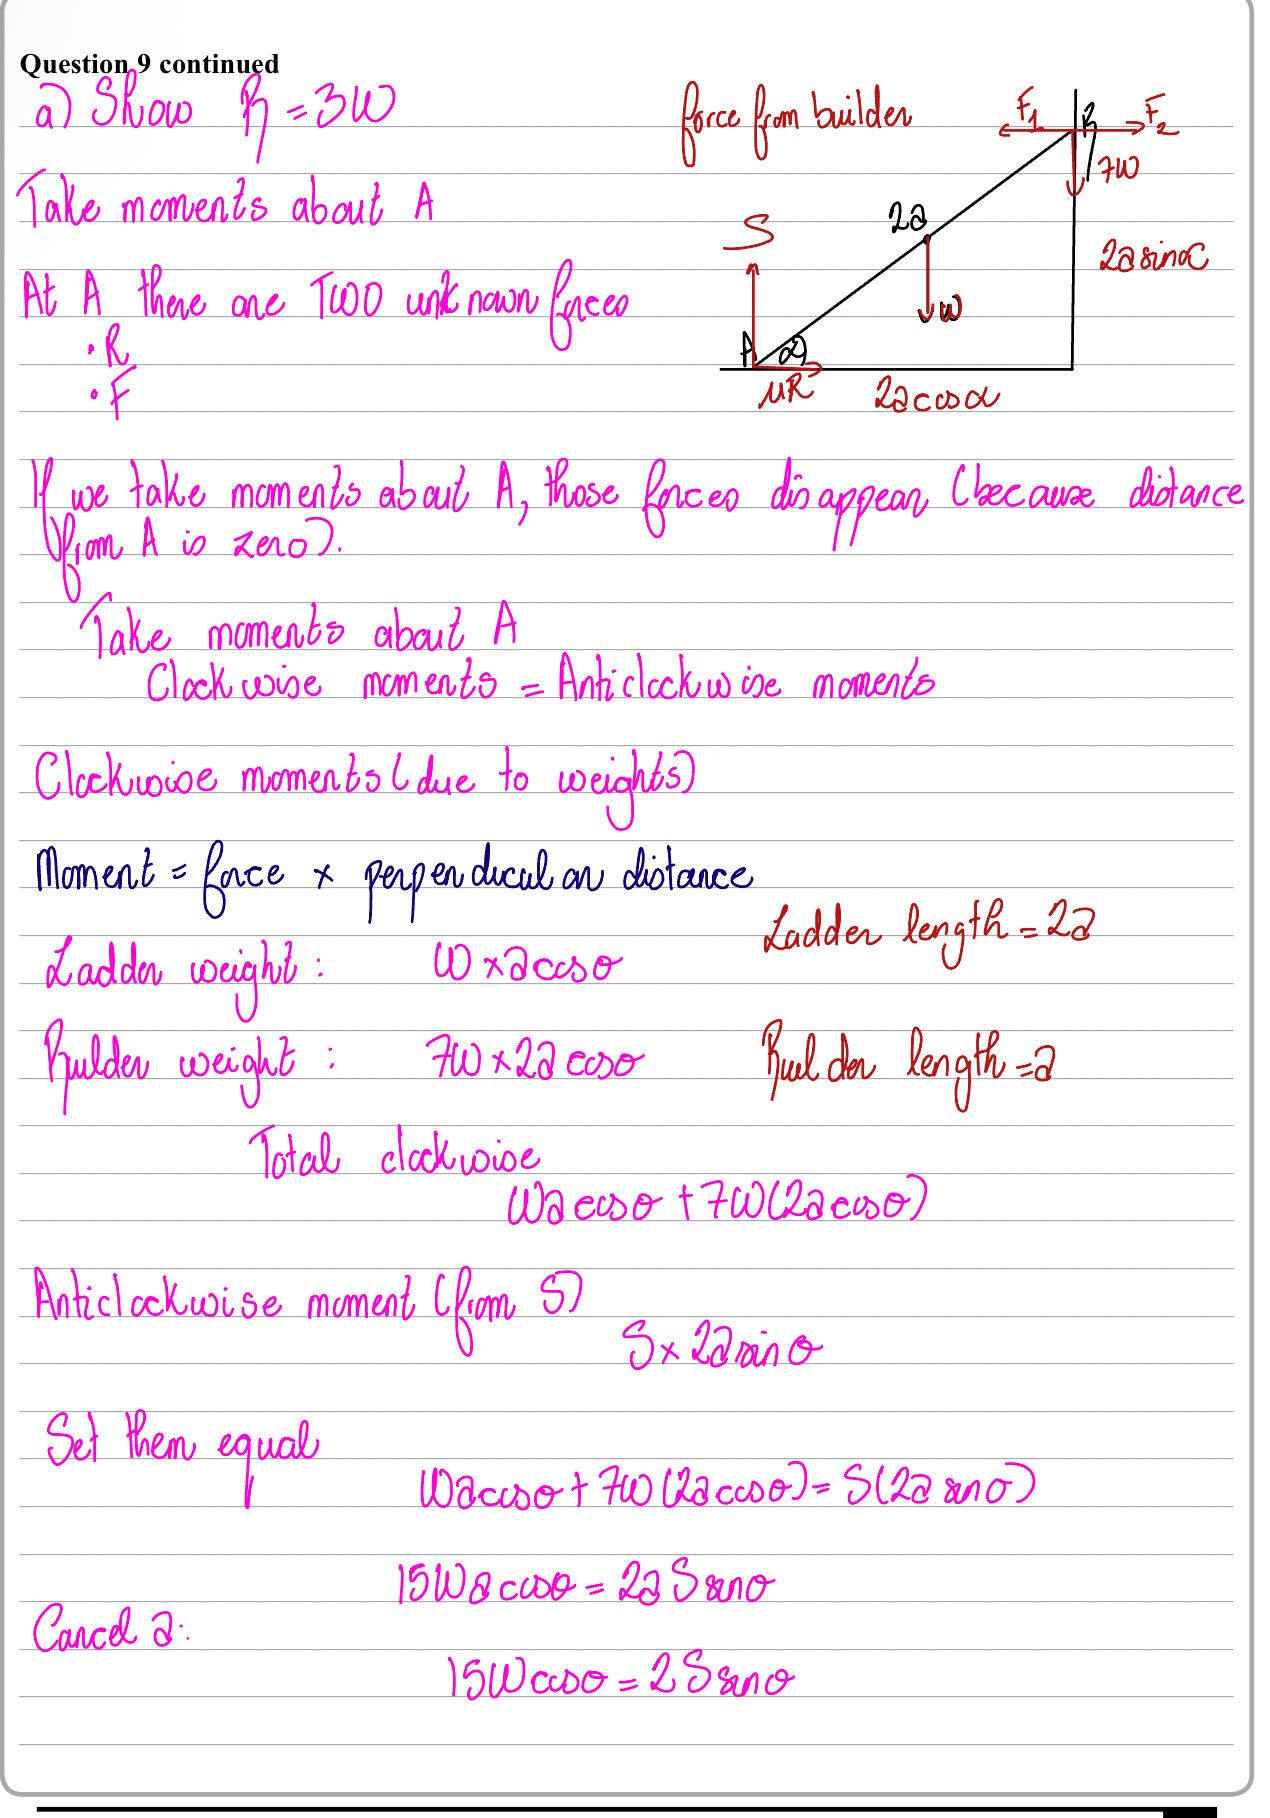 Question 9 continued
a) Show R = 3W
force from builder
F1
F2
R
7W
Take moments about A
S
2a
2a sinα
At A there are TWO unknown forces
W
• R
A
α
• F
μR
2a cosα
If we take moments about A, those forces disappear (because distance
from A is zero).
Take moments about A
Clockwise moments = Anticlockwise moments
Clockwise moments (due to weights)
Moment = force × perpendicular distance
Ladder length = 2a
Ladder weight : W × a cosθ
Builder weight : 7W × 2a cosθ
Builder length = a
Total clockwise
Wa cosθ + 7W(2a cosθ)
Anticlockwise moment (from S)
S × 2a sinθ
Set them equal
Wa cosθ + 7W(2a cosθ) = S(2a sinθ)
15Wa cosθ = 2a S sinθ
Cancel a:
15W cosθ = 2S sinθ